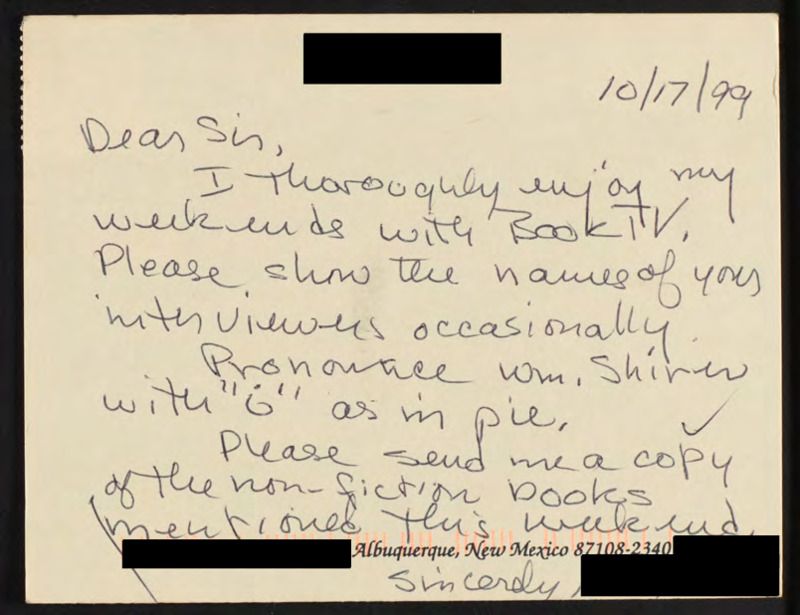 10/17/99
Dear Sir,
I thoroughly enjoy my
weekends with BookTV.
Please show the names of your
interviewers occasionally.
Pronounce Wm. Shirer
with "i" as in pie.
Please send me a copy
of the non-fiction books
mentioned this weekend.
Albuquerque, New Mexico 87108-2340
Sincerely,